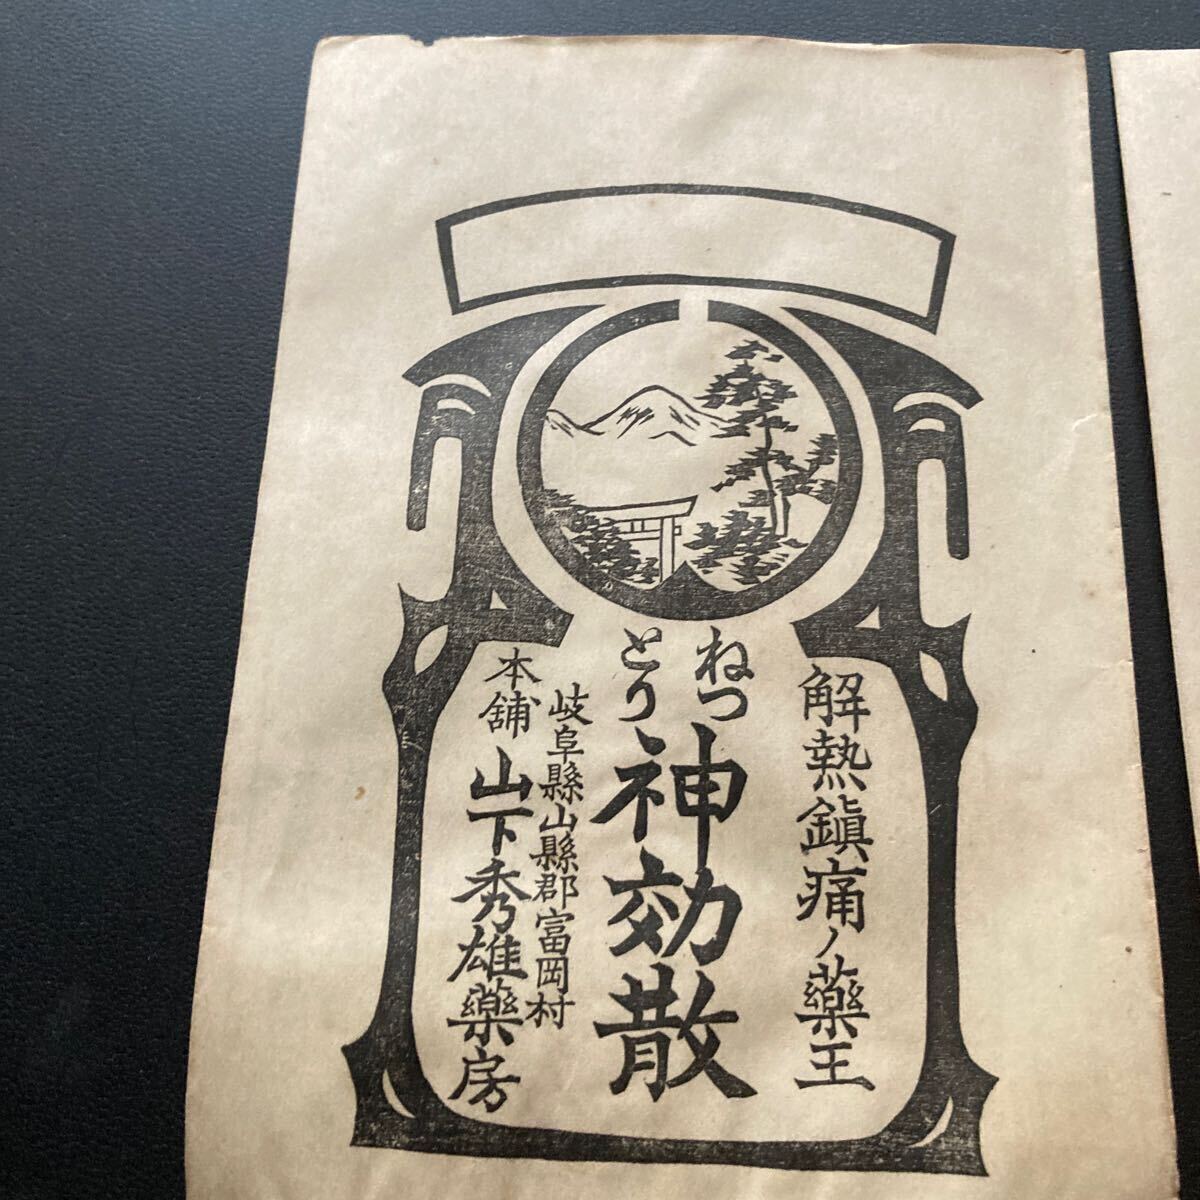 解熱鎭痛ノ藥王
ねつ
とり
神効散
岐阜縣山縣郡富岡村
本舖 山下秀雄藥房